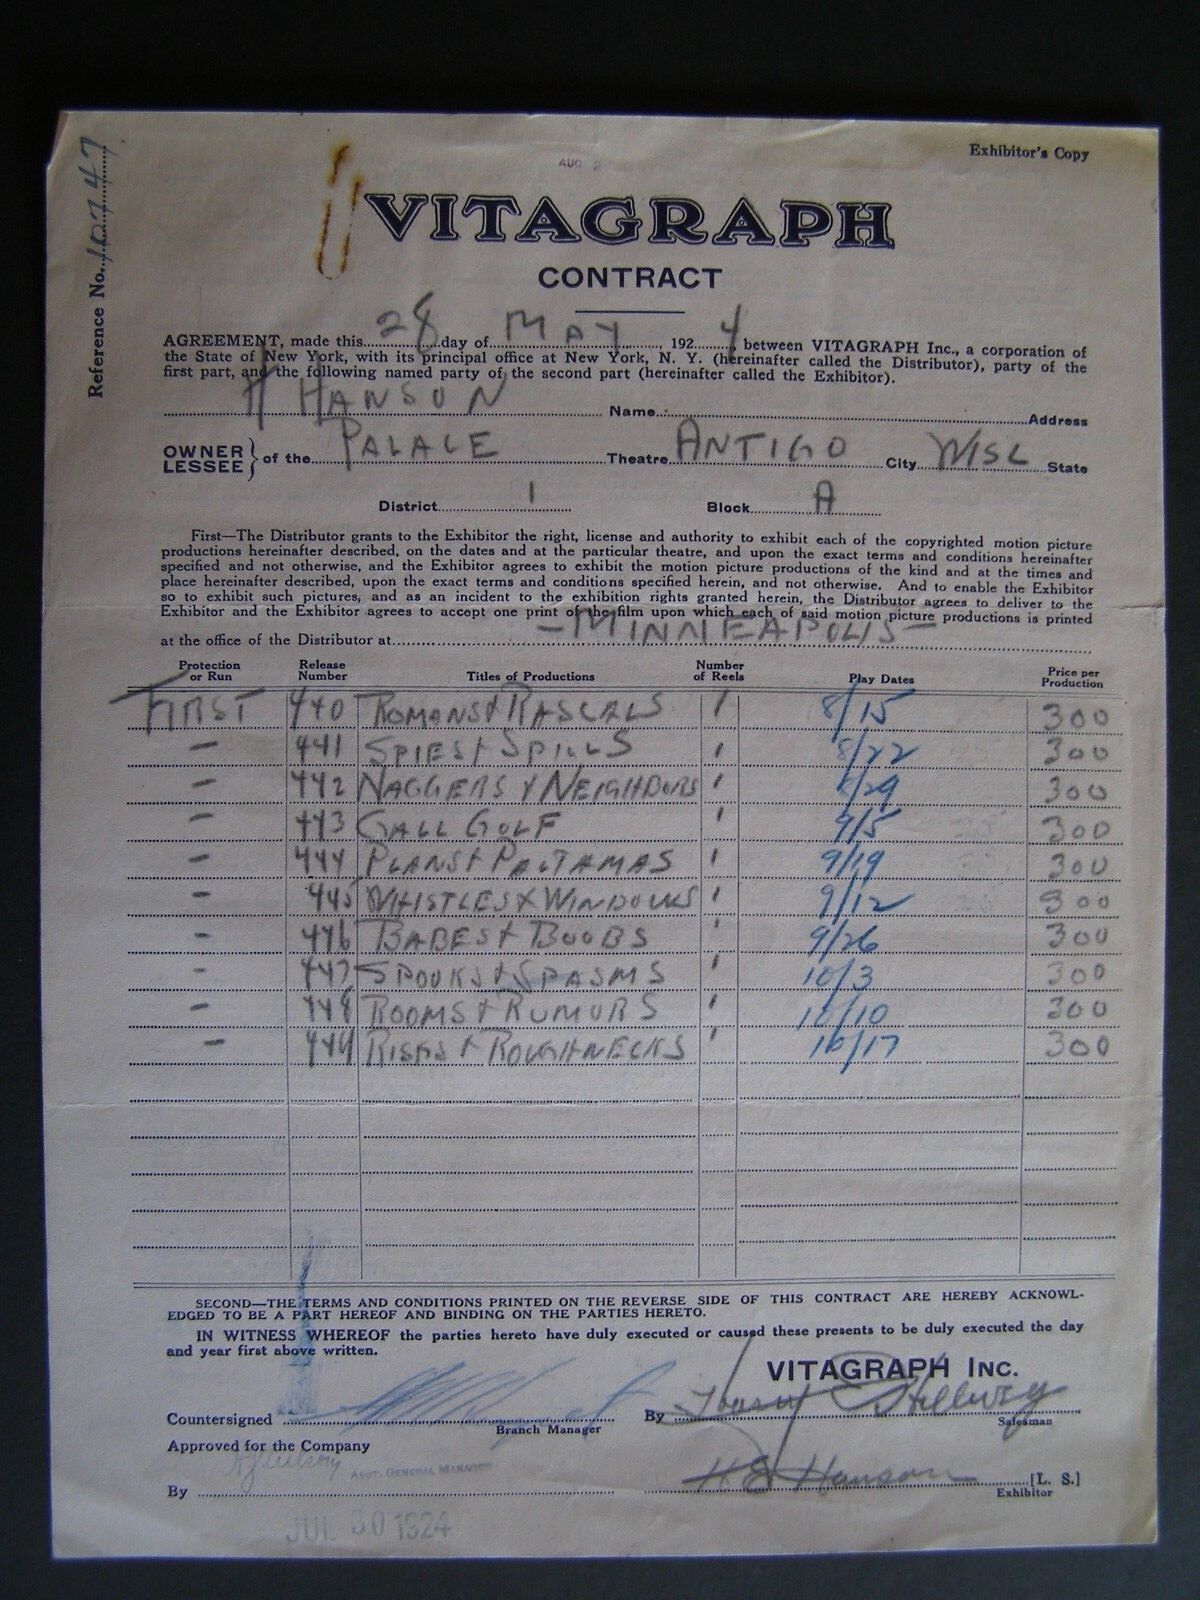 Exhibitor's Copy
AUG 2
Reference No. 10747
VITAGRAPH
CONTRACT
AGREEMENT, made this 28 day of MAY, 1924, between VITAGRAPH Inc., a corporation of
the State of New York, with its principal office at New York, N. Y. (hereinafter called the Distributor), party of the
first part, and the following named party of the second part (hereinafter called the Exhibitor).
H HANSON Name Address
OWNER LESSEE } of the PALACE Theatre ANTIGO City WISC State
District 1 Block A
First—The Distributor grants to the Exhibitor the right, license and authority to exhibit each of the copyrighted motion picture
productions hereinafter described, on the dates and at the particular theatre, and upon the exact terms and conditions hereinafter
specified and not otherwise, and the Exhibitor agrees to exhibit the motion picture productions of the kind and at the times and
place hereinafter described, upon the exact terms and conditions specified herein, and not otherwise. And to enable the Exhibitor
so to exhibit such pictures, and as an incident to the exhibition rights granted herein, the Distributor agrees to deliver to the
Exhibitor and the Exhibitor agrees to accept one print of the film upon which each of said motion picture productions is printed
at the office of the Distributor at -MINNEAPOLIS-
Protection or Run Release Number Titles of Productions Number of Reels Play Dates Price per Production
FIRST 440 ROMANS & RASCALS 1 8/15 300
- 441 SPIES & SPILLS 1 8/22 300
- 442 NAGGERS & NEIGHBORS 1 8/29 300
- 443 GALL GOLF 1 9/5 300
- 444 PLANS & PAJAMAS 1 9/19 300
- 445 WHISTLES & WINDOWS 1 9/12 300
- 446 BABES & BOOBS 1 9/26 300
- 447 SPOOKS & SPASMS 1 10/3 300
- 448 ROOMS & RUMORS 1 10/10 300
- 449 RISKS & ROUGHNECKS 1 10/17 300
SECOND—THE TERMS AND CONDITIONS PRINTED ON THE REVERSE SIDE OF THIS CONTRACT ARE HEREBY ACKNOWL-
EDGED TO BE A PART HEREOF AND BINDING ON THE PARTIES HERETO.
IN WITNESS WHEREOF the parties hereto have duly executed or caused these presents to be duly executed the day
and year first above written.
VITAGRAPH INC.
Countersigned
Branch Manager
By
Salesman
Approved for the Company
ASST. GENERAL MANAGER
By
H E Hanson [L. S.]
Exhibitor
JUL 30 1924